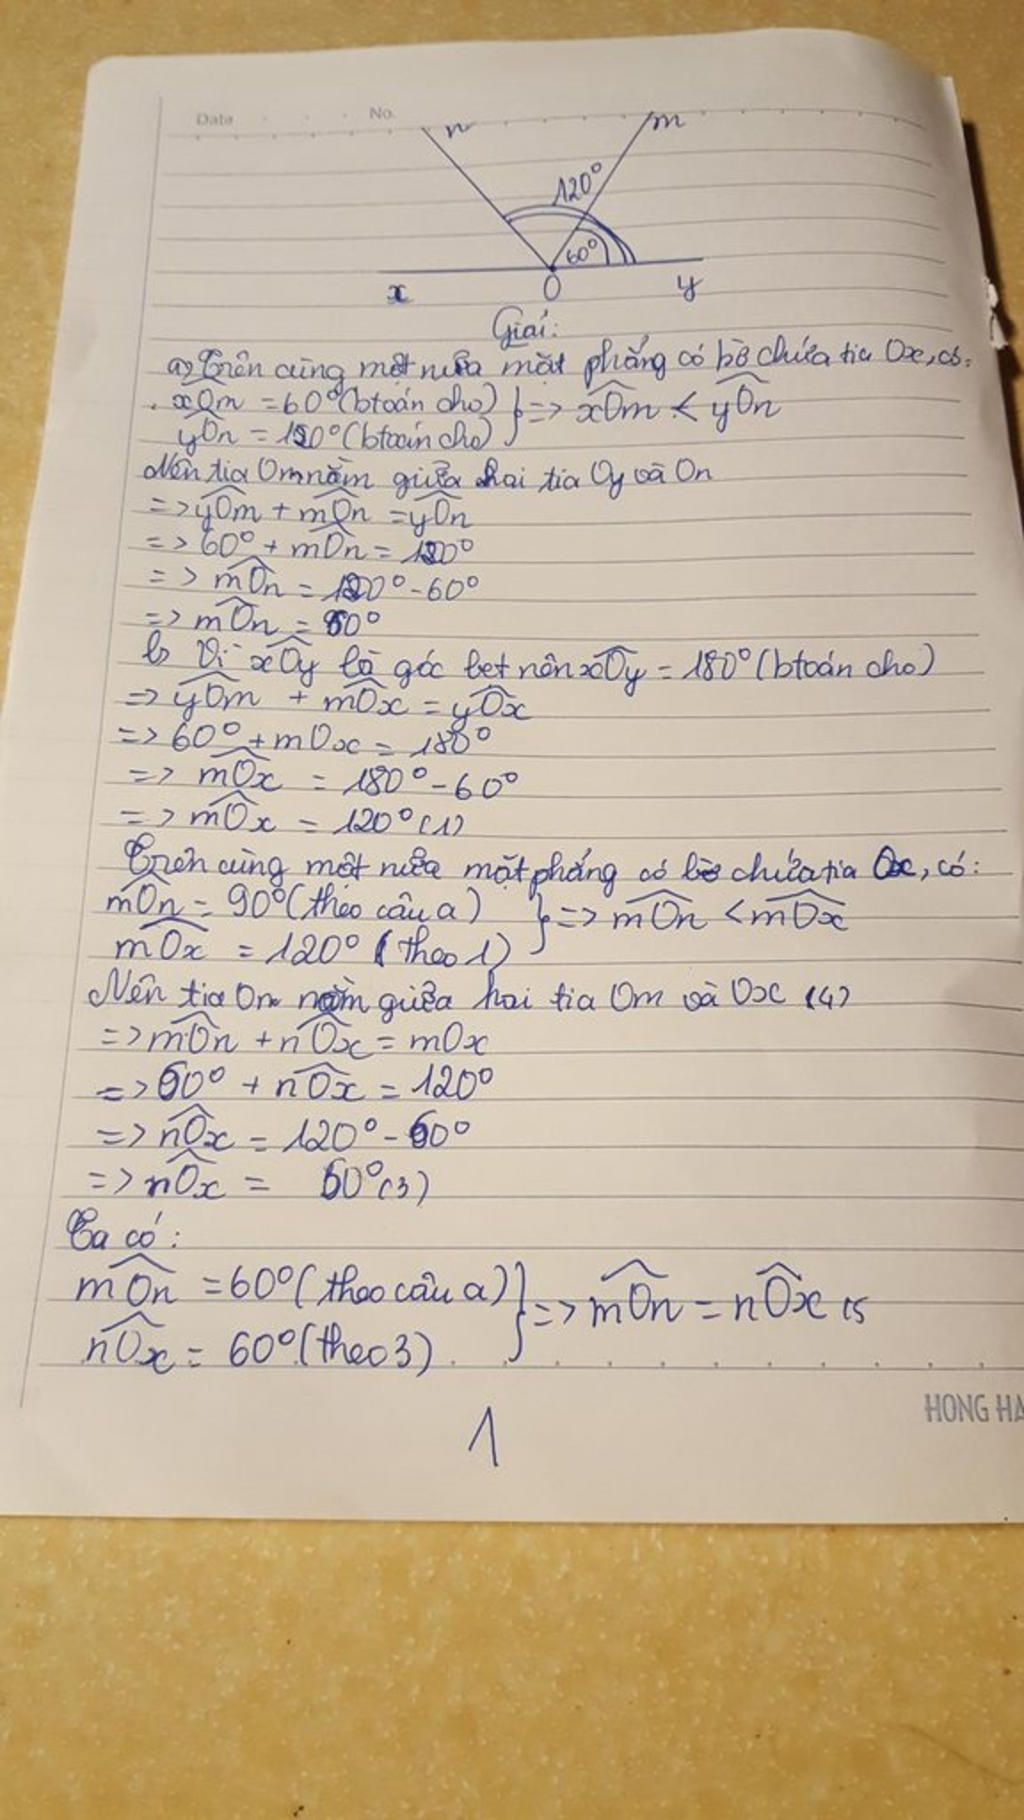 Date No.
n m
120°
60°
x O y
Giải:
a) Trên cùng một nửa mặt phẳng có bờ chứa tia Ox, có:
xOm = 60° (btoán cho) } => xOm < yOn
yOn = 120° (btoán cho)
Nên tia Om nằm giữa hai tia Oy và On
=> yOm + mOn = yOn
=> 60° + mOn = 120°
=> mOn = 120° - 60°
=> mOn = 60°
b) Vì xOy là góc bẹt nên xOy = 180° (btoán cho)
=> yOm + mOx = yOx
=> 60° + mOx = 180°
=> mOx = 180° - 60°
=> mOx = 120° (1)
Trên cùng một nửa mặt phẳng có bờ chứa tia Ox, có:
mOn = 90° (theo câu a) } => mOn < mOx
mOx = 120° (theo 1)
Nên tia On nằm giữa hai tia Om và Ox (4)
=> mOn + nOx = mOx
=> 60° + nOx = 120°
=> nOx = 120° - 60°
=> nOx = 60° (3)
Ta có:
mOn = 60° (theo câu a) } => mOn = nOx (5
nOx = 60° (theo 3)
HONG HA
1